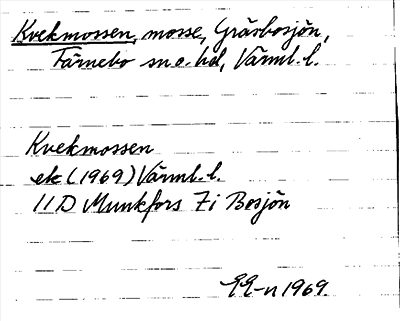 Kvekmossen, mosse, Gräsbosjön,
Färnebo sn o. hd, Värml. l.
Kvekmossen
ek (1969) Värml. l.
11D Munkfors 7i Bosjön
1969.